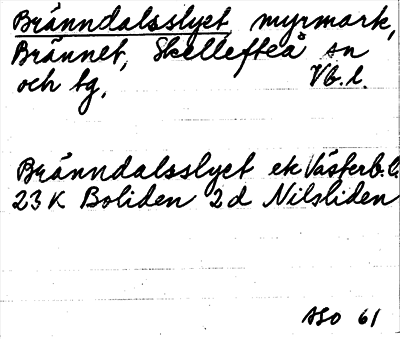 Bränndalsslyet, myrmark,
Brännet, Skellefteå sn
och tg, Vb. l.
Bränndalsslyet ek Västerb. l.
23 K Boliden 2d Nilsliden
ASO 61